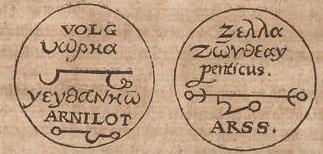 VOLG
Ʋωρηα
γευθανηω̄
ARNILOT
Ζελλα
Ζωνθεαυ
penticus.
ARSS.